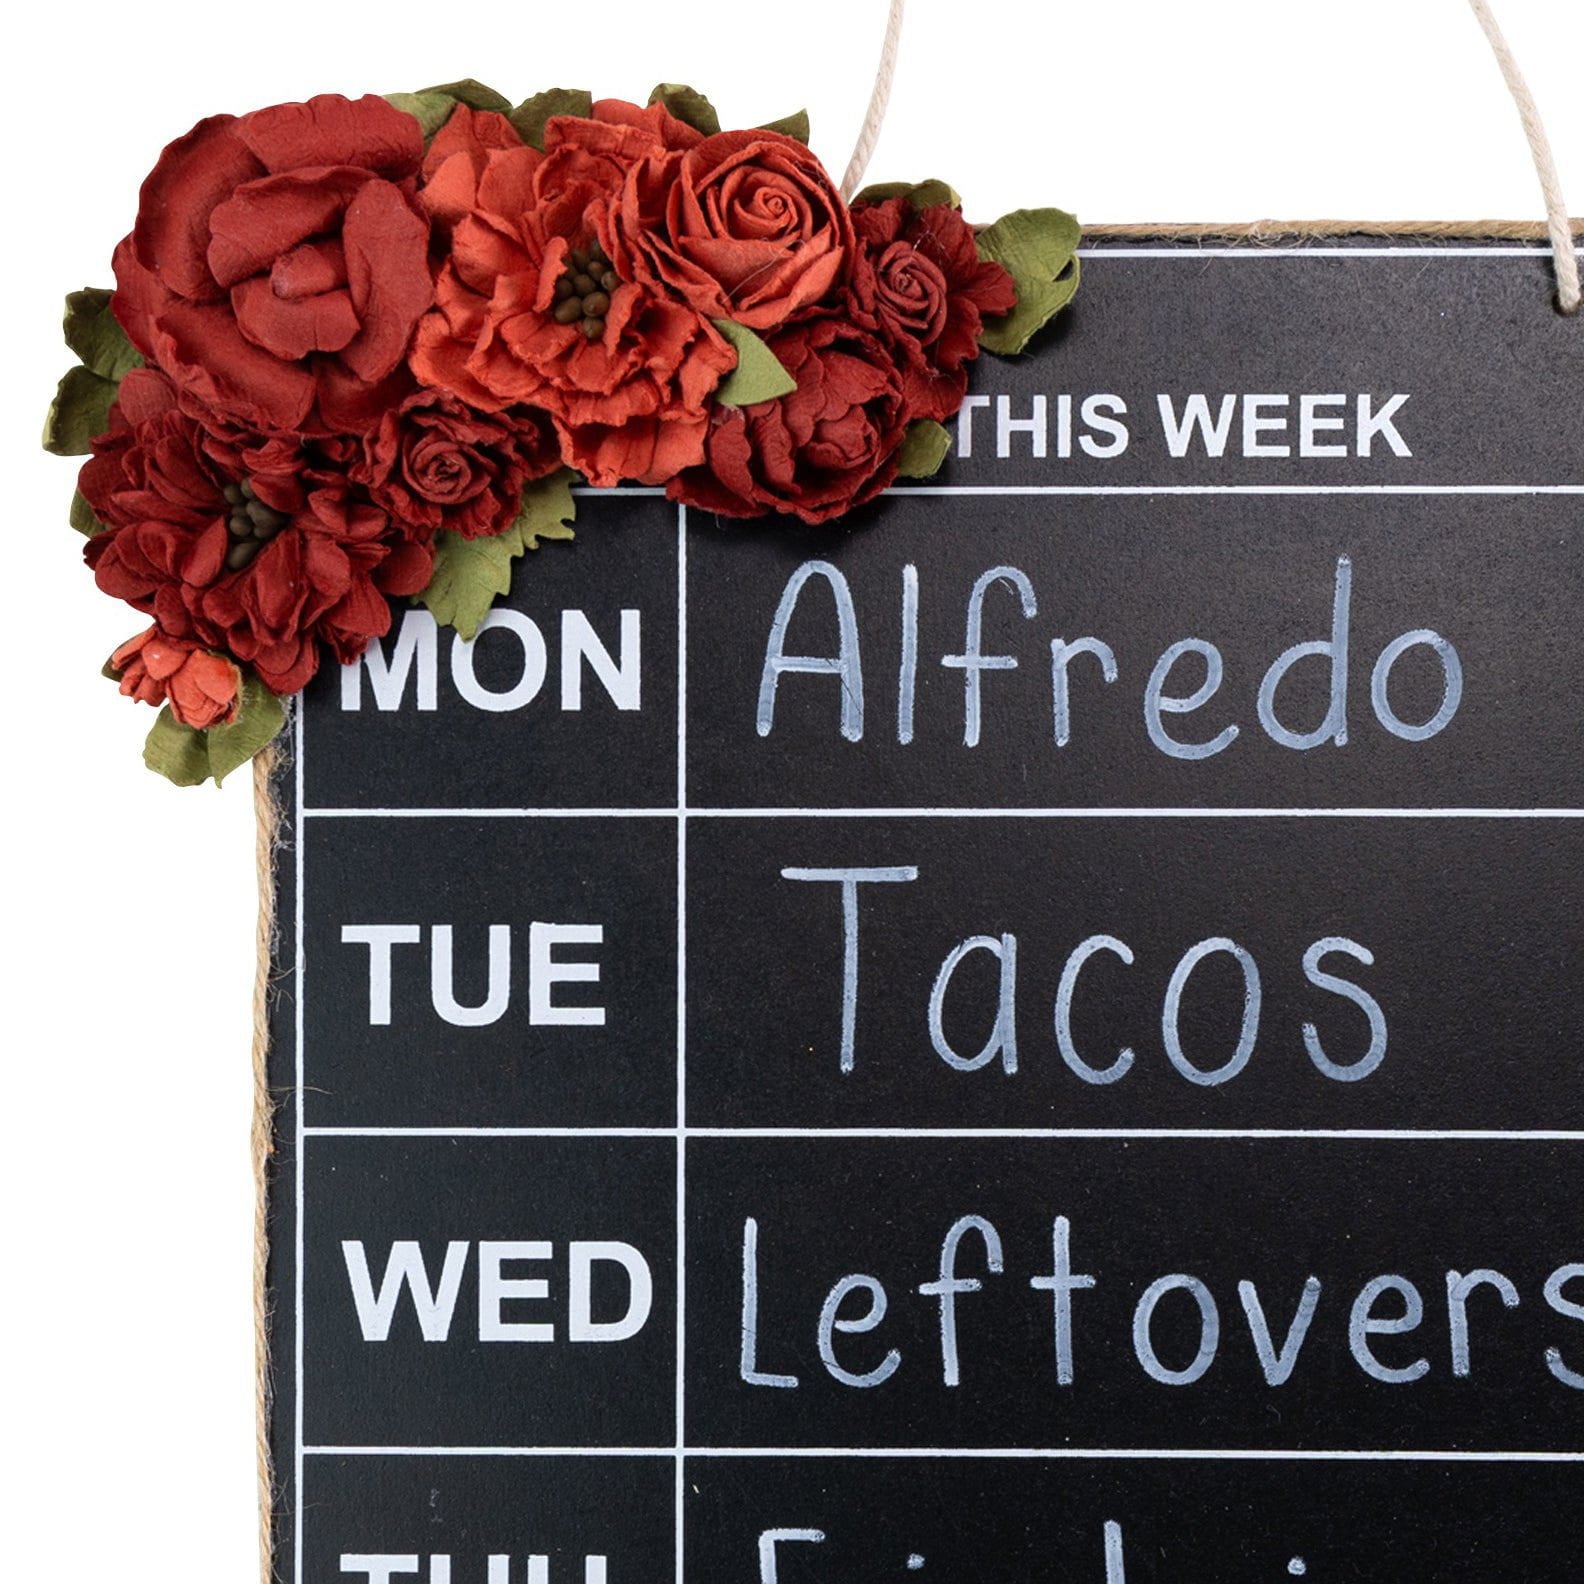 THIS WEEK
MON Alfredo
TUE Tacos
WED Leftovers
THU